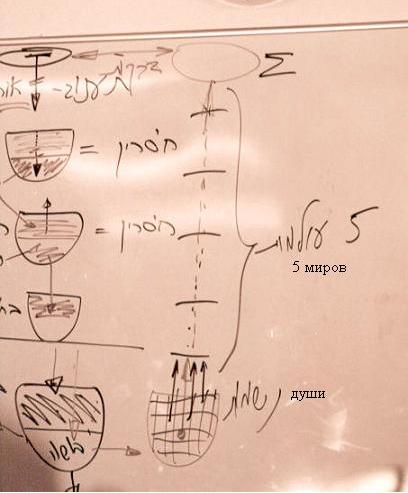 Σ
תענוג -
= חסרון
= חסרון
5 עולמות
5 миров
נשמות
души